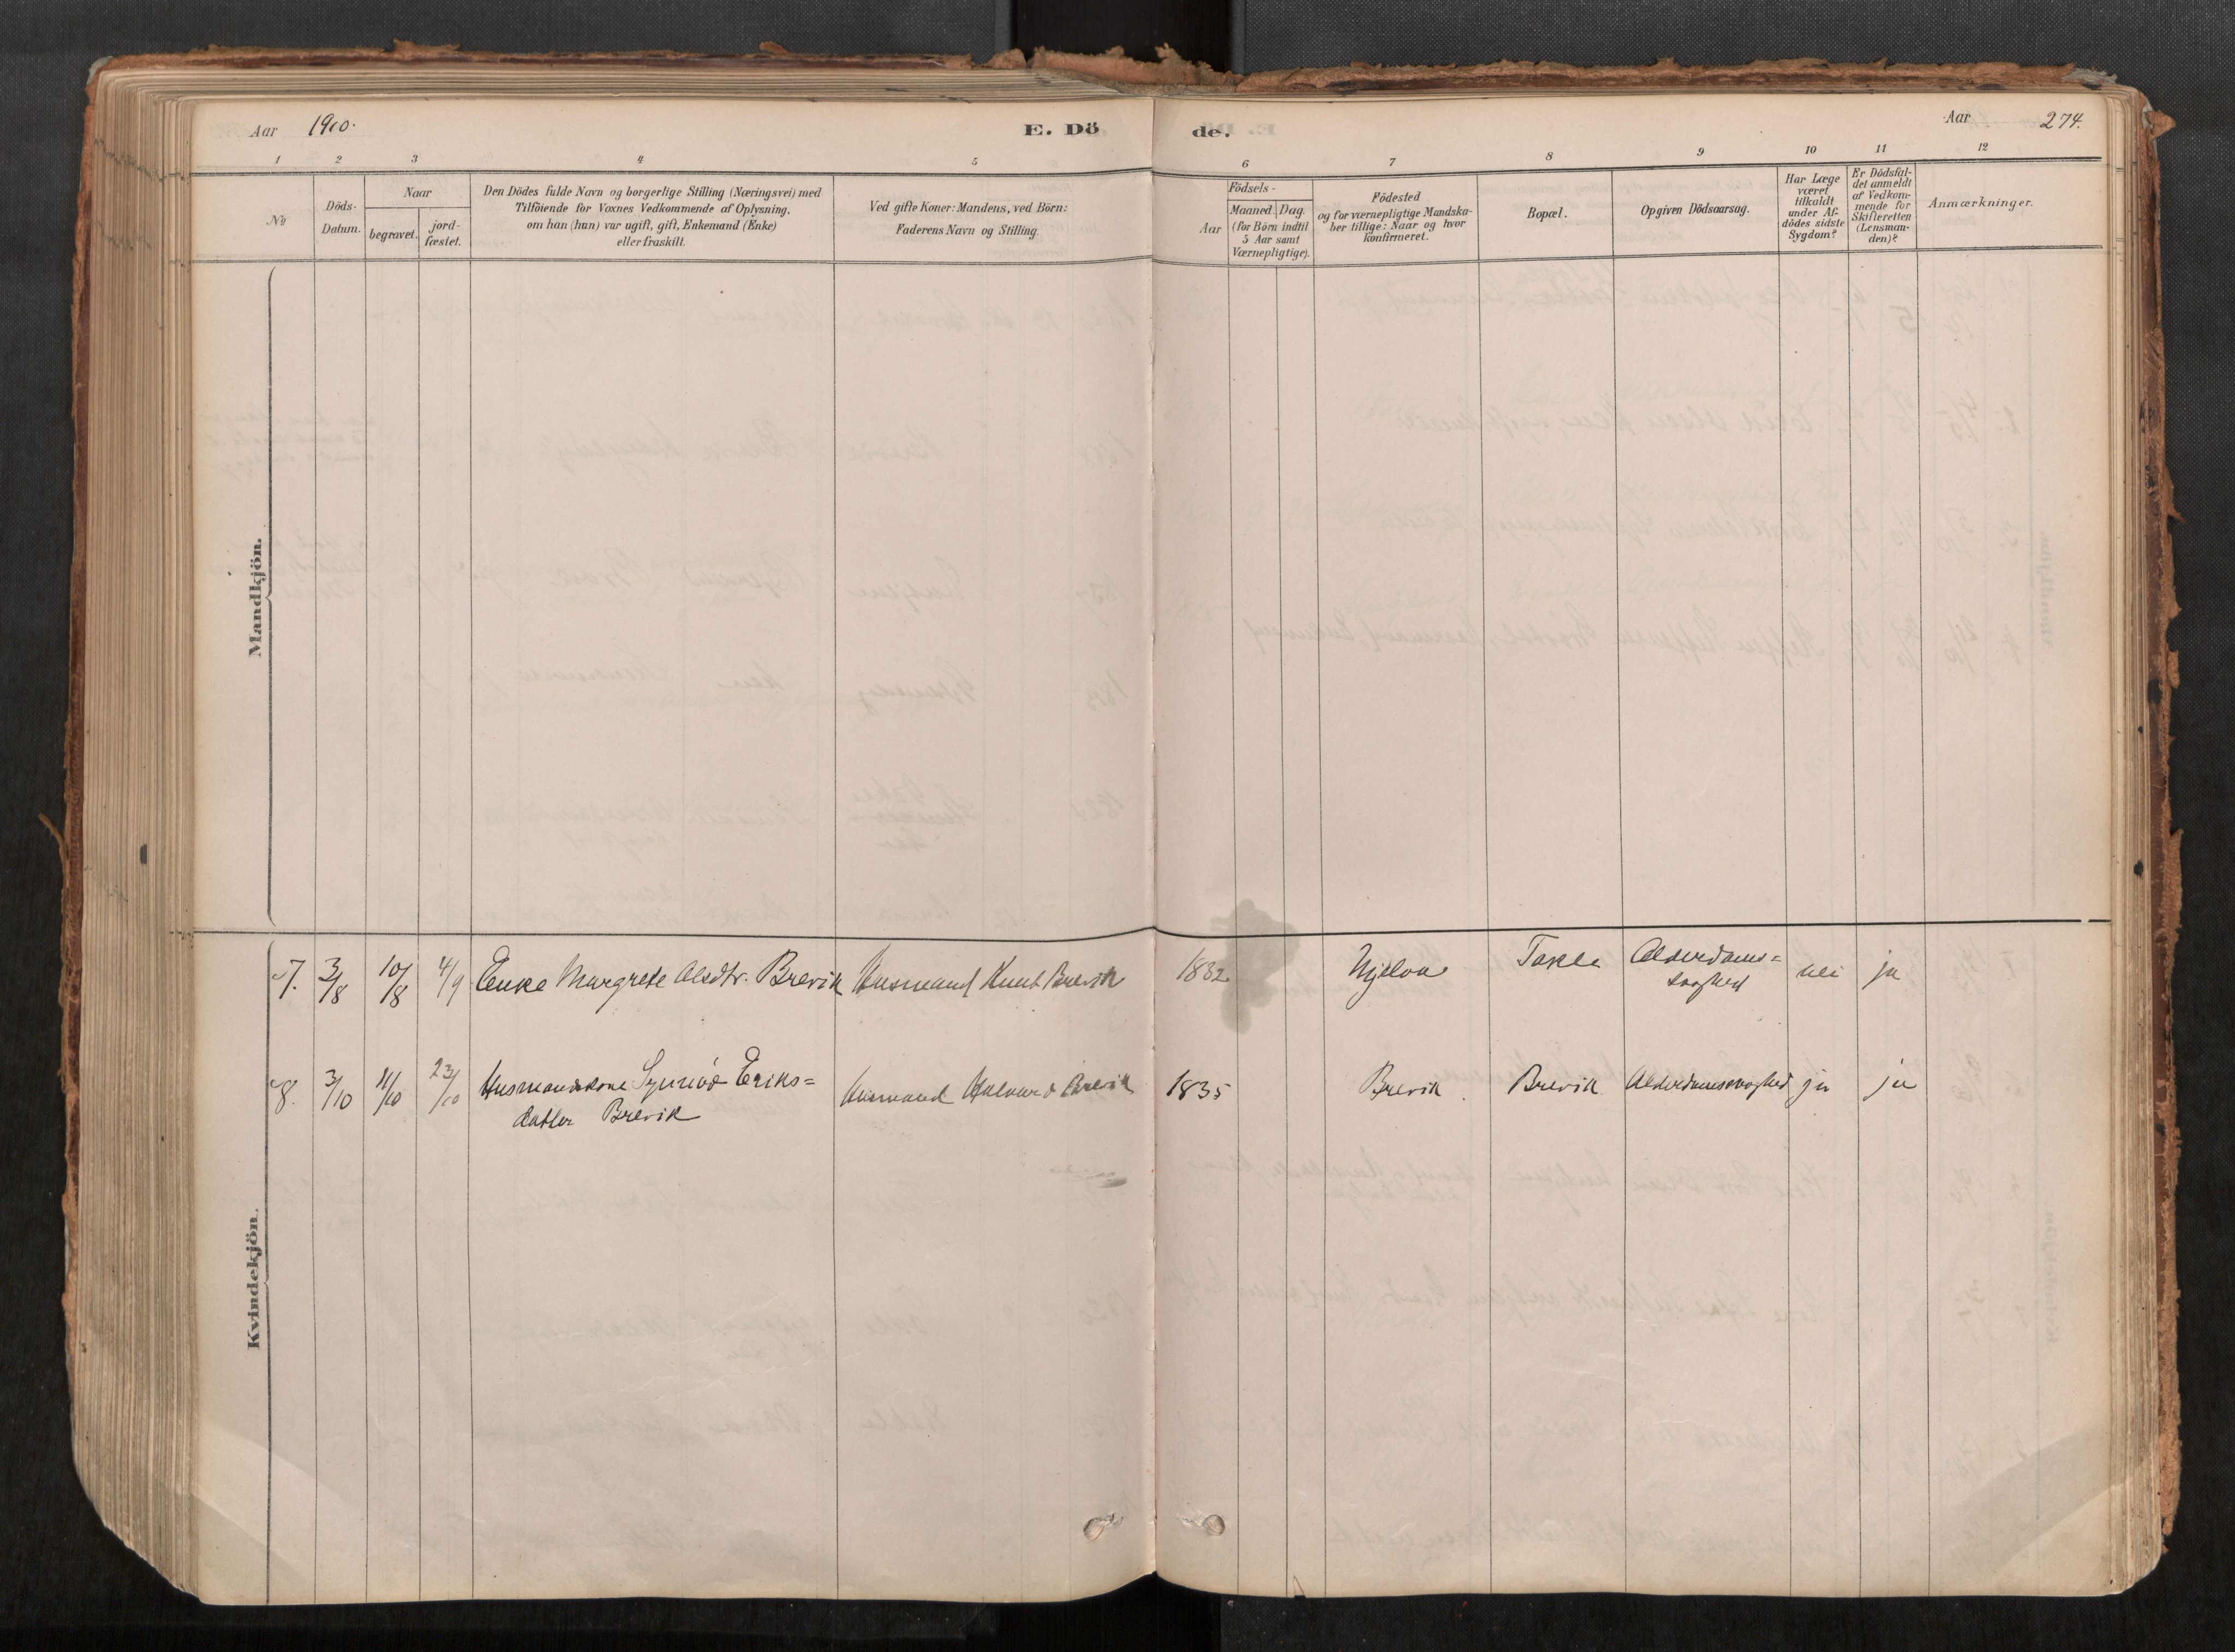 Aar 1900.
E. Dö
de.
Aar
274.
1 2 3 4 5 6 7 8 9 10 11 12
No
Döds-
Datum.
Naar
begravet.
jord-
fæstet.
Den Dödes fulde Navn og borgerlige Stilling (Næringsvei) med
Tilföiende for Voxnes Vedkommende af Oplysning,
om han (hun) var ugift, gift, Enkemand (Enke)
eller fraskilt.
Ved gifte Koner: Mandens, ved Börn:
Faderens Navn og Stilling.
Födsels-
Aar
Maaned.
Dag.
(for Börn indtil
5 Aar samt
Værnepligtige).
Födested
og for værnepligtige Mandska-
ber tillige: Naar og hvor
konfirmeret.
Bopæl.
Opgiven Dödsaarsag.
Har Læge
været
tilkaldt
under Af-
dödes sidste
Sygdom?
Er Dödsfal-
det anmeldt
af Vedkom-
mende for
Skifteretten
(Lensman-
den)?
Anmærkninger.
Mandkjön.
Kvindekjön.
7. 3/8 10/8 4/9 Enke Margrete Olsdtr. Brevik Husmand Knut Brevik 1832 Takle Alderdoms=
svaghed nei ja
8. 3/10 11/10 23/10 Husmandskone Synnöv Eriks=
datter Brevik Husmand Halvard Brevik 1835 Brevik Brevik Alderdomssvaghed ja ja